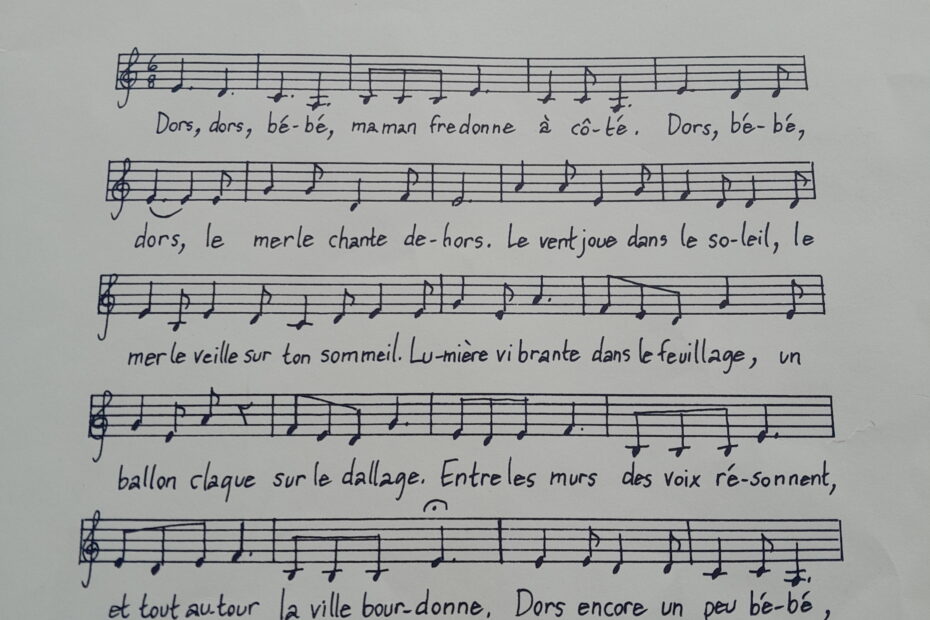 6
8
Dors, dors, bé-bé, maman fredonne à cô-té. Dors, bé-bé,
dors, le merle chante de-hors. Le vent joue dans le so-leil, le
merle veille sur ton sommeil. Lu-mière vi brante dans le feuillage, un
ballon claque sur le dallage. Entre les murs des voix ré-sonnent,
et tout autour la ville bour-donne. Dors encore un peu bé-bé,